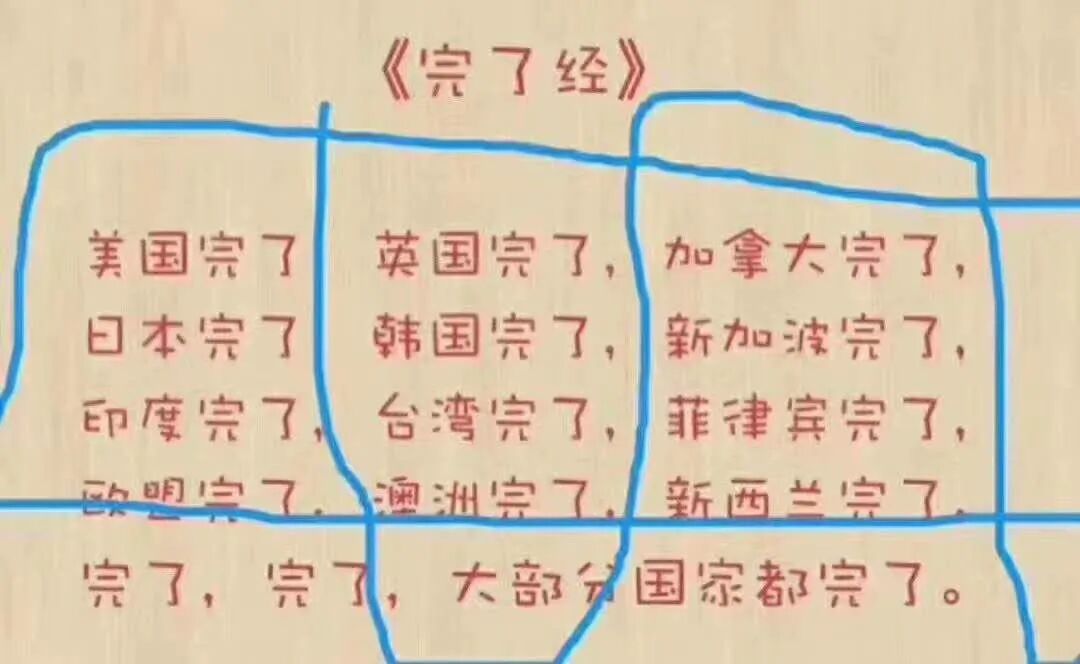 《完了经》
美国完了 英国完了，加拿大完了，
日本完了 韩国完了，新加波完了，
印度完了，台湾完了，菲律宾完了，
欧盟完了，澳洲完了，新西兰完了，
完了，完了，大部分国家都完了。